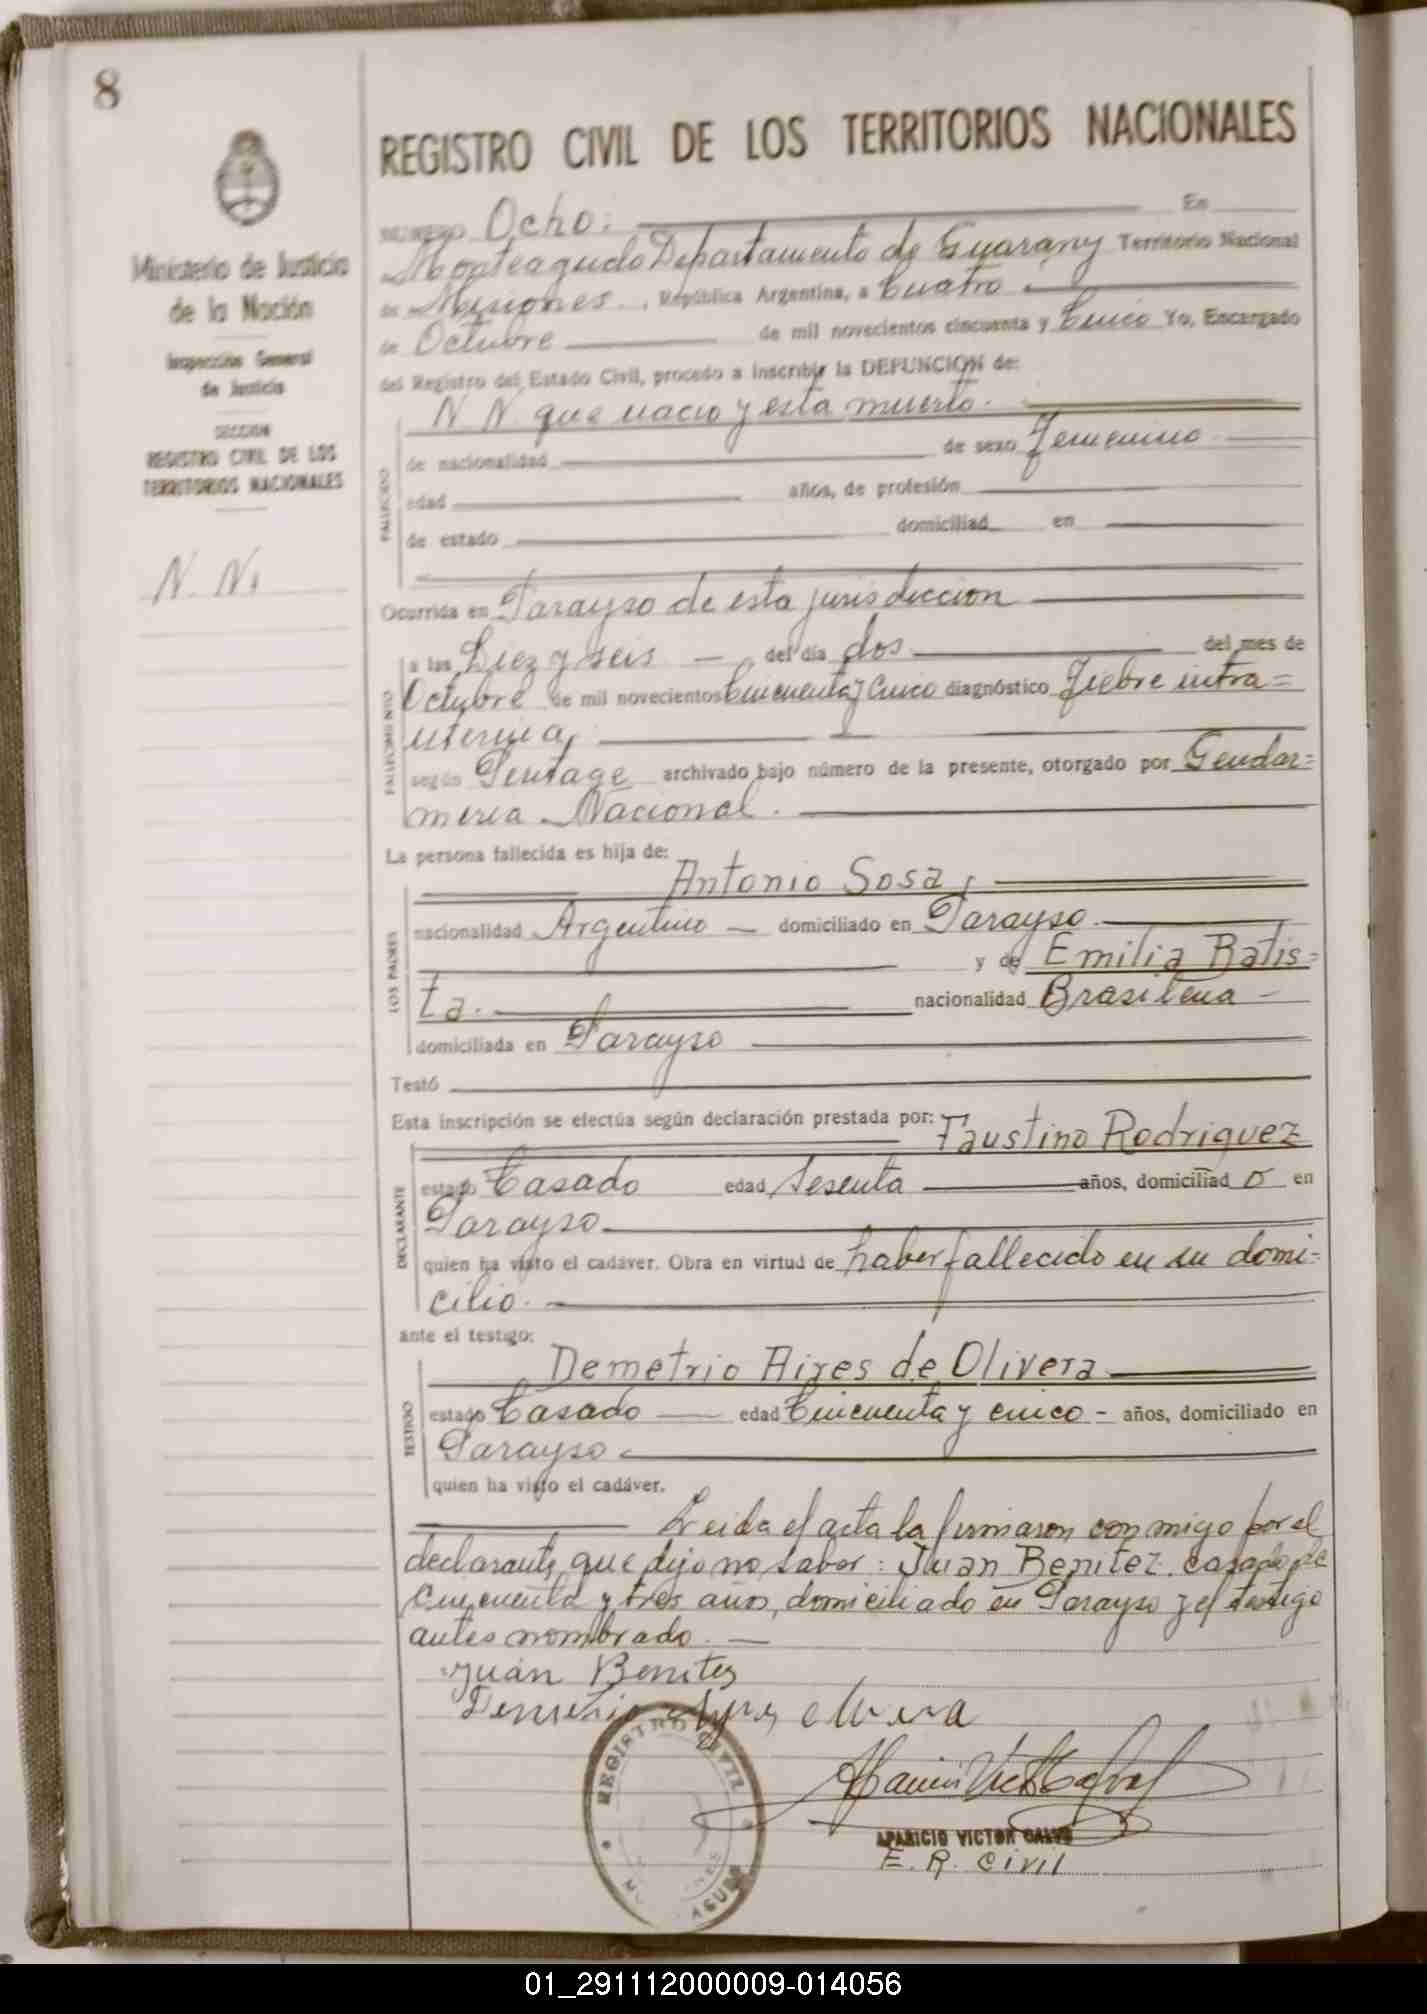 8
REGISTRO CIVIL DE LOS TERRITORIOS NACIONALES
Ministerio de Justicia
de la Nación
Inspección General
de Justicia
SECCION
REGISTRO CIVIL DE LOS
TERRITORIOS NACIONALES
N. N.
NUMERO Ocho: En
Monteagudo Departamento de Guarany Territorio Nacional
de Misiones. , República Argentina, a Cuatro
de Octubre de mil novecientos cincuenta y Cinco Yo, Encargado
del Registro del Estado Civil, procedo a inscribir la DEFUNCION de:
N. N. que nacio y esta muerto.
FALLECIDO
de nacionalidad de sexo Femenino
edad años, de profesión
de estado domiciliad en
Ocurrida en Parayso de esta jurisdiccion
FALLECIMIENTO
a las Diez y seis del día dos del mes de
Octubre de mil novecientos Cincuenta y Cinco diagnóstico Fiebre intra=
uterina,
según archivado bajo número de la presente, otorgado por Gendar=
meria Nacional.
La persona fallecida es hija de:
LOS PADRES
Antonio Sosa,
nacionalidad Argentino domiciliado en Parayso.
y de Emilia Batis=
ta. nacionalidad Brasilena
domiciliada en Parayso
Testó
Esta inscripción se efectúa según declaración prestada por: Faustino Rodriguez
DECLARANTE
estado Casado edad Sesenta años, domiciliad o en
Parayso.
quien ha visto el cadáver. Obra en virtud de haber fallecido en su domi=
cilio.
ante el testigo:
TESTIGO
Demetrio Aires de Olivera
estado Casado edad Cincuenta y cinco - años, domiciliado en
Parayso
quien ha visto el cadáver.
Leida el acta la firmaron conmigo por el
declarante, que dijo no saber: Juan Benitez. casado de
Cincuenta y tres años, domiciliado en Parayso y el testigo
antes nombrado.
Juan Benites
REGISTRO CIVIL
APARICIO VICTOR
E. R. Civil
01_291112000009-014056